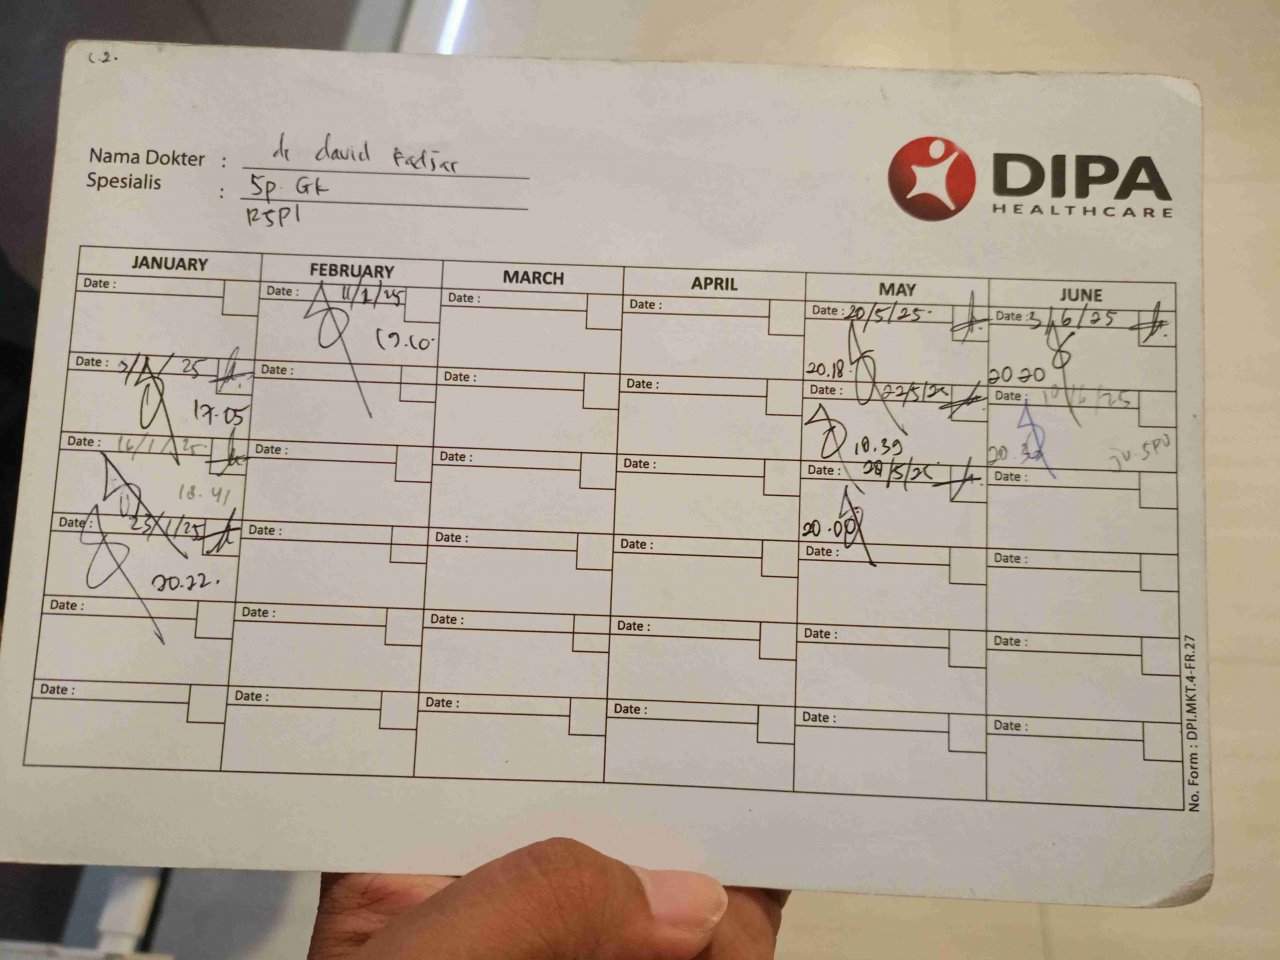 C.2.
Nama Dokter : dr david Fadjar
Spesialis : Sp. GK
RSPI
DIPA
HEALTHCARE
JANUARY FEBRUARY MARCH APRIL MAY JUNE
Date : Date : 11/2/25 Date : Date : Date : 20/5/25 Date : 3/6/25
19.10 20.18 2020
Date : /1/25 Date : Date : Date : Date : 22/5/25 Date : 10/6/25
17.05 18.39 20.32
Date : 16/1/25 Date : Date : Date : Date : 28/5/25 Date :
18.41 20.00
Date : 23/1/25 Date : Date : Date : Date : Date :
20.22.
Date : Date : Date : Date : Date : Date :
Date : Date : Date : Date : Date : Date :
No. Form : DPI.MKT.4-FR.27